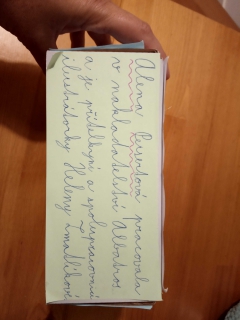 Alena Peisertová pracovala
v nakladatelství Albatros
a je přítelkyní a spolupracovnicí
ilustrátorky Heleny Zmatlíkové